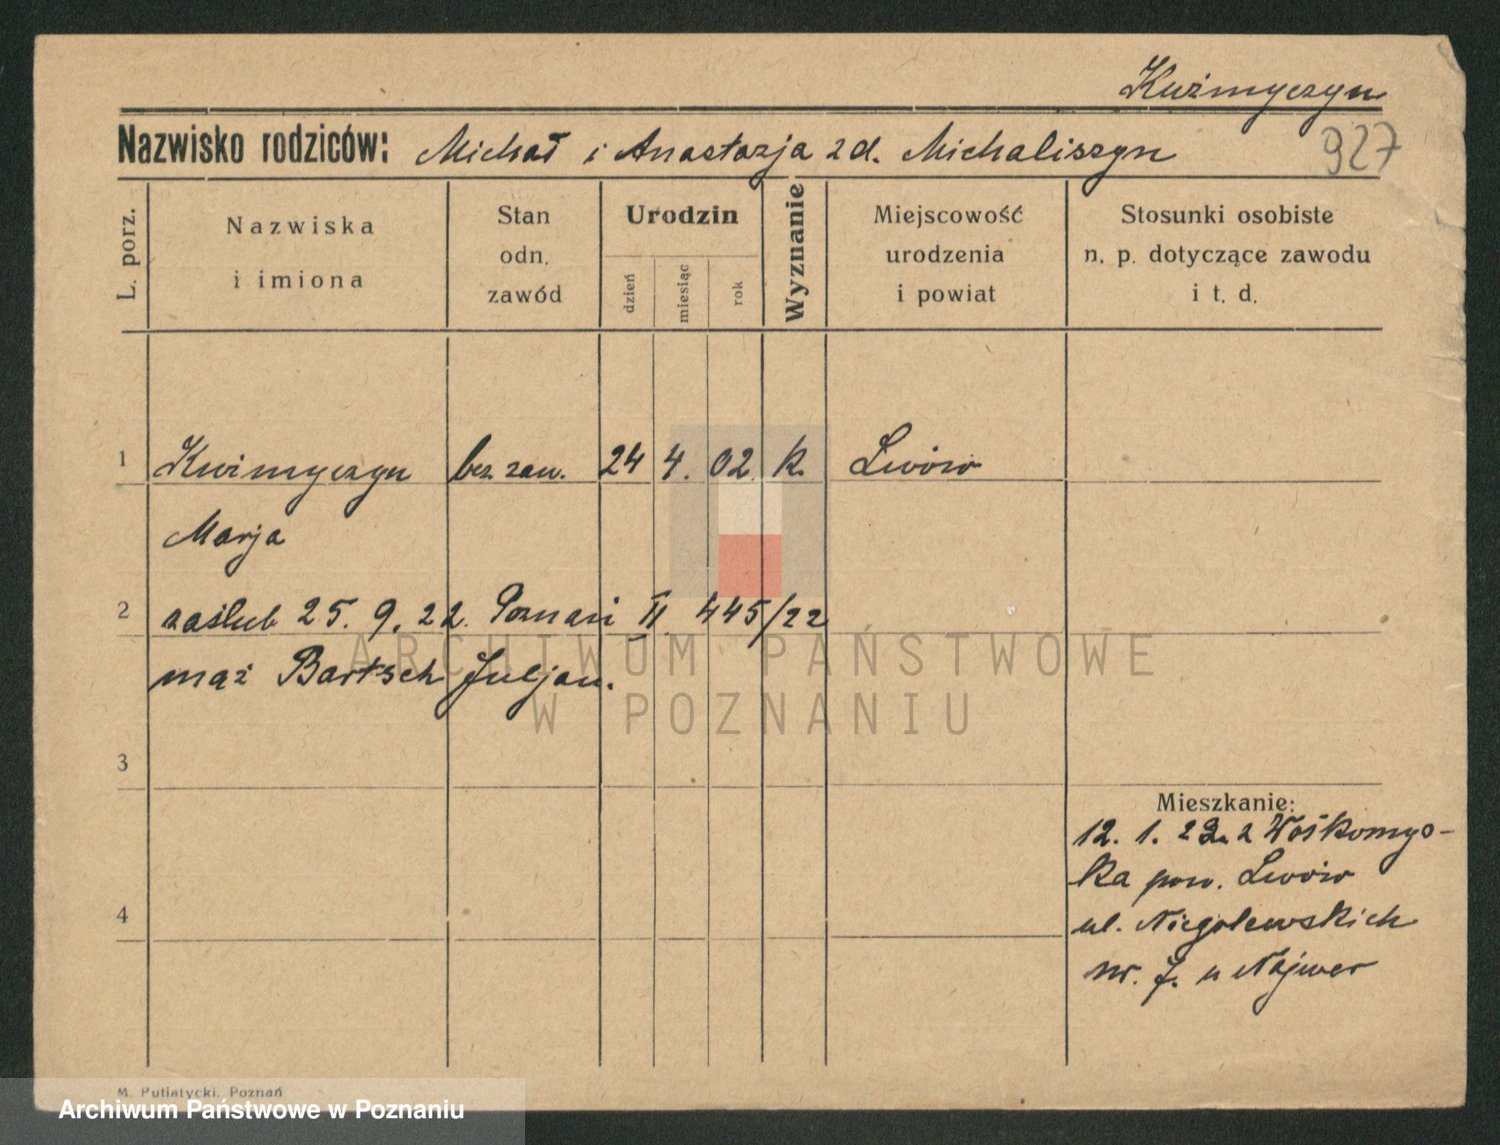 Kuźmyczyn
Nazwisko rodziców: Michał i Anastazja zd. Michaliszyn
927
L. porz.
Nazwiska
i imiona
Stan
odn.
zawód
Urodzin
dzień
miesiąc
rok
Wyznanie
Miejscowość
urodzenia
i powiat
Stosunki osobiste
n. p. dotyczące zawodu
i t. d.
1 Kuźmyczyn bez zaw. 24 4. 02. k. Lwów
Marja
2 zaślub 25. 9. 22. Poznań II 445/22
mąż Bartsch Juljan.
ARCHIWUM PAŃSTWOWE
W POZNANIU
3
Mieszkanie:
12. 1. 22. z
ka pow. Lwów
4
ul. Niegolewskich
nr. 7. u
M. Putiatycki, Poznań
Archiwum Państwowe w Poznaniu